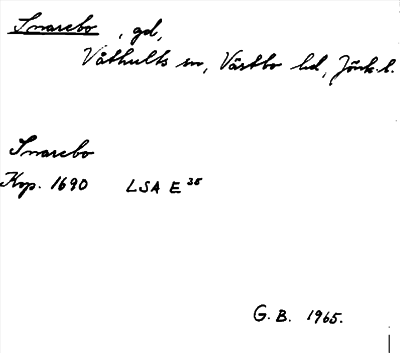 Snarebo, gd,
Våthults sn, Västbo hd, Jönk. l.
Snarebo
Kop. 1690 LSA E 38
G. B. 1965.